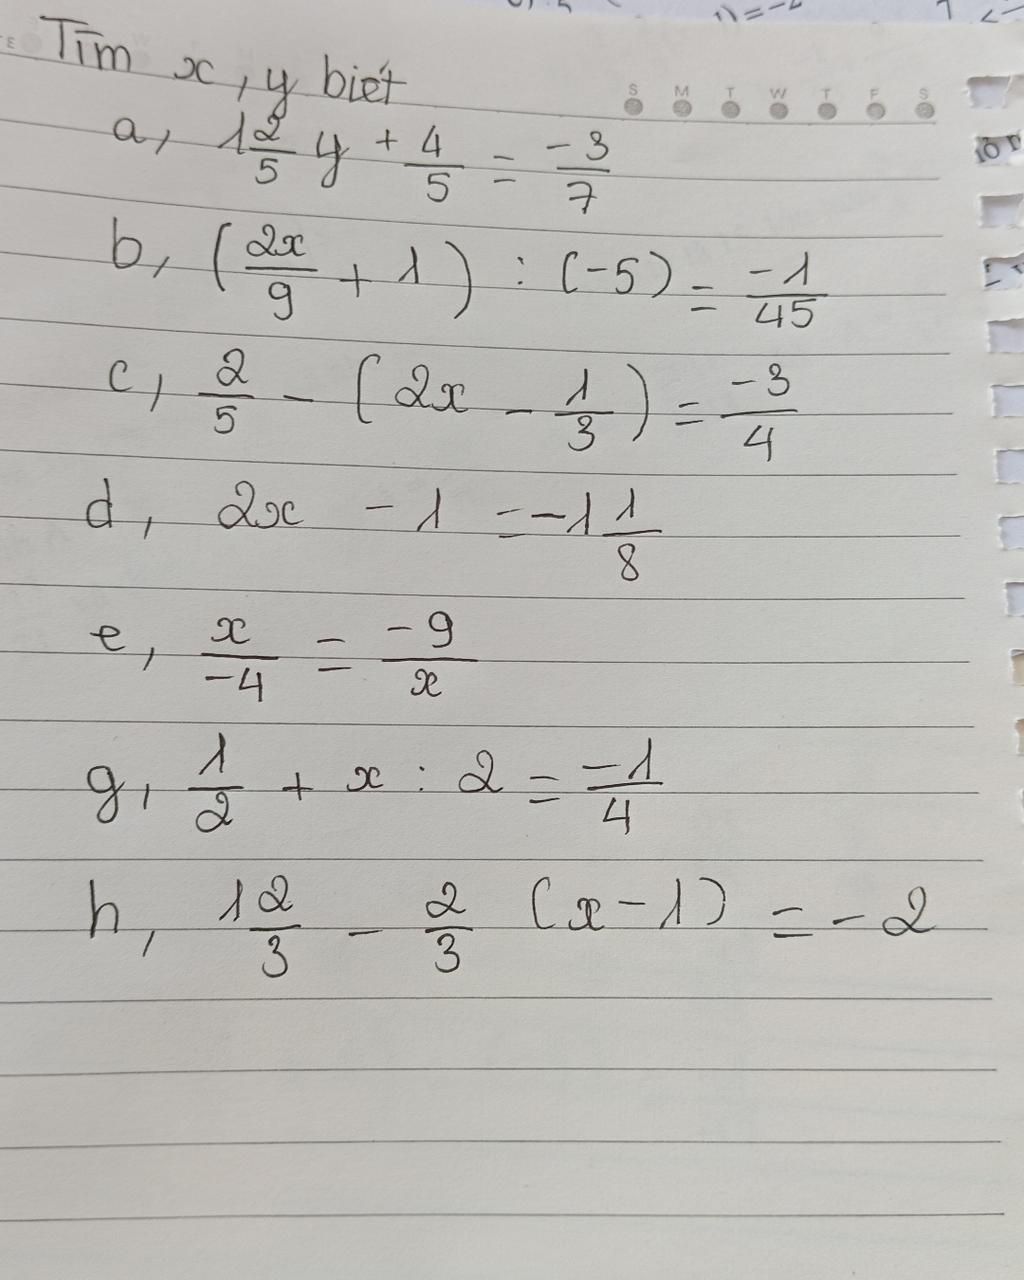 Tìm x, y biết
S M T W T F S
a, 1 2/5 y + 4/5 = -3/7
b, (2x/9 + 1) : (-5) = -1/45
c, 2/5 - (2x - 1/3) = -3/4
d, 2x - 1 = -1 1/8
e, x/-4 = -9/x
g, 1/2 + x : 2 = -1/4
h, 1 2/3 - 2/3 (x - 1) = -2